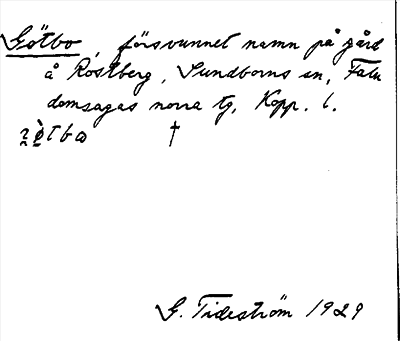 Götbo, försvunnet namn på gård
å Rostberg, Sundborns sn, Falu
domsagas norra tg, Kopp. l.
†
G. Tideström 1929